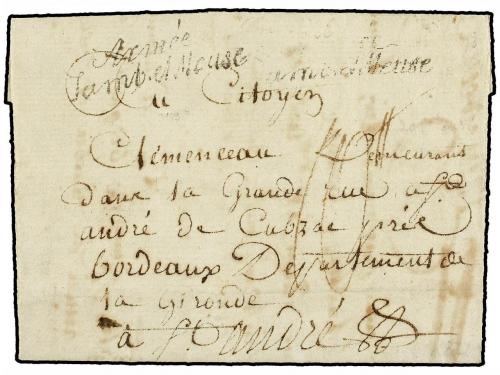 Armée
Samb. et Meuse
Au Citoyen
Clémenceau Demeurant
dans la Grande rue a St
andré de Cubzac prés
bordeaux Departement de
la Gironde
a St andré